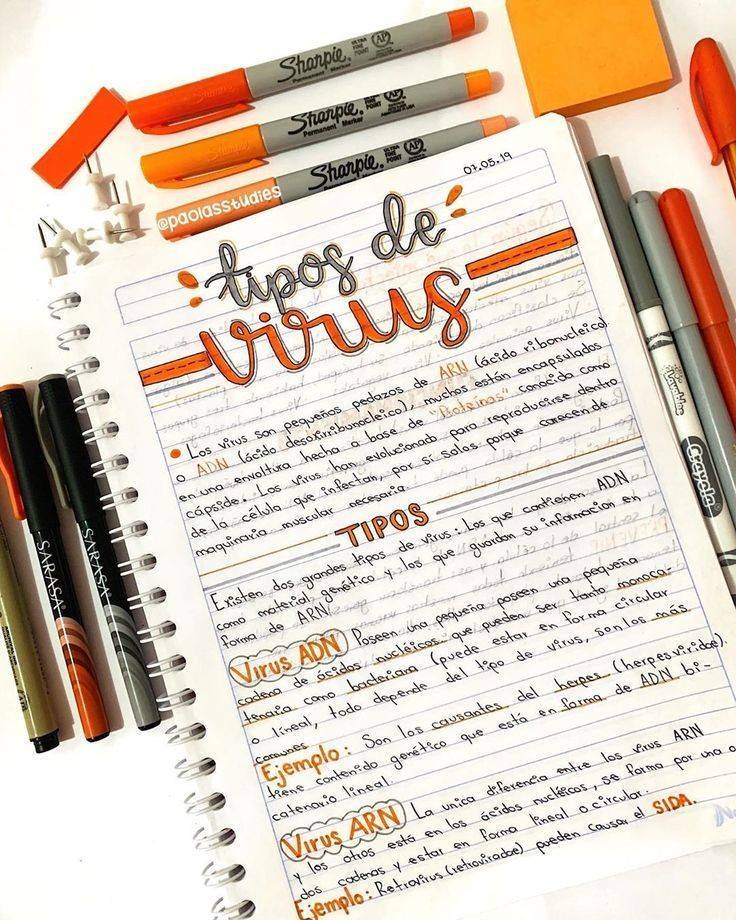 Sharpie
Permanent Marker
ULTRA FINE POINT
AP
Sharpie
Permanent Marker
ULTRA FINE POINT
AP
Sharpie
Permanent Marker
ULTRA FINE POINT
AP
@paolasstudies
07.05.19
tipos de
virus
• Los virus son pequeños pedazos de ARN (ácido ribonucleico)
o ADN (ácido desoxirribunocleico), muchos están encapsulados
en una envoltura hecha a base de "Poteínas" conocida como
cápside. Los virus han evolucionado para reproducirse dentro
de la célula que infectan, por sí solos porque carecen de
maquinaria muscular necesaria.
TIPOS
Existen dos grandes tipos de virus: Los que contienen ADN
como material genético y los que guardan su informacion en
forma de ARN.
Virus ADN Poseen una pequeña poseen una pequeña
cadena de ácidos nucléicos que pueden ser tanto monoca-
tenaria como bacteriana (puede estar en forma circular
o líneal, todo depende del tipo de virus, son los más
comunes
Ejemplo: Son los causantes del herpes (herpesviridae).
tiene contenido genético que está en forma de ADN bi-
catenario lineal.
Virus ARN La unica diferencia entre los virus ARN
y los otros está en los ácidos nucléicos, se forma por una o
dos cadenas y estar en forma líneal o circular.
Ejemplo: Retrovirus (retroviradae) pueden causar el SIDA.
SARASA
SARASA
Crayola